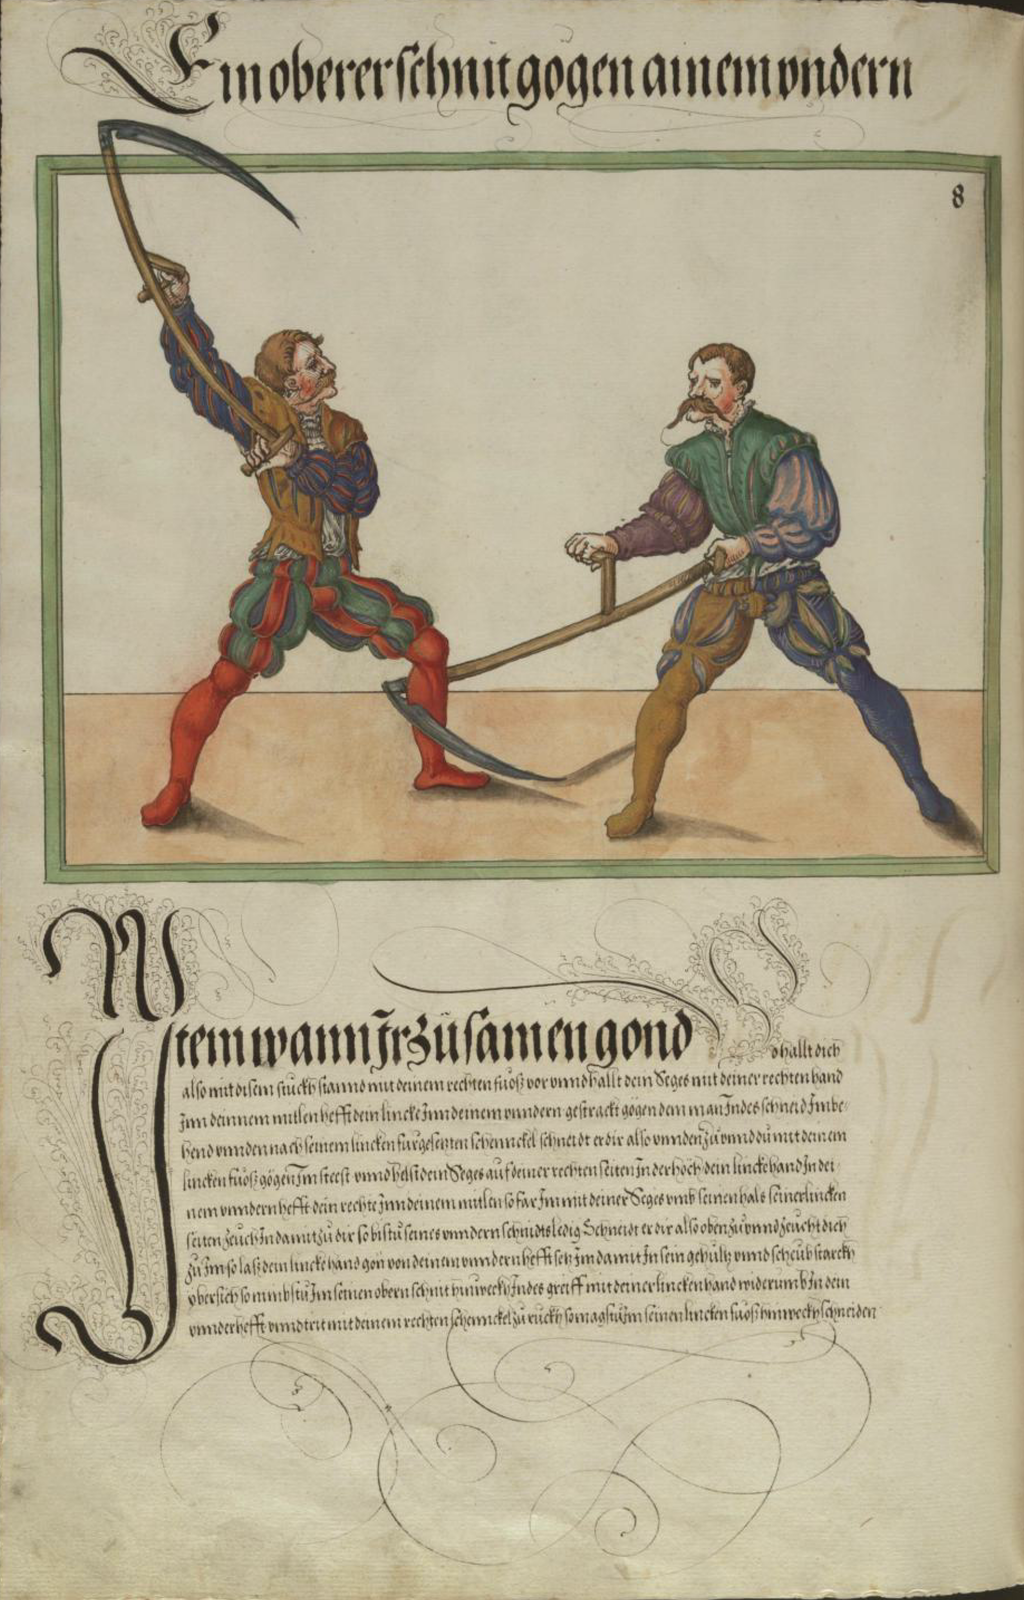 Ein oberer schnit gögen ainem vndern
8
Item wann Ir zůsamen gond So hallt dich
also mit disem stuckh stannd mit deinem rechten fuoß vor vnnd hallt dein Seges mit deiner rechten hand
Inn deinnem mitlen hefft dein lincke Inn deinem vnndern gestrackt gögen dem man Indes schneid Im be⸗
hend vnnden nach seinem lincken fürgesetzten schennckel schneidt er dir also vnnden zů vnnd du mit deinem
lincken fuoß gögen Im steest vnnd helst dein Seges auf deiner rechten seiten In der höch dein lincke hand In dei⸗
nem vnndern hefft dein rechte Inn deinem mitlen so far Im mit deiner Seges vmb seinen hals seiner lincken
seiten zeuch In damit zů dir so bistu seines vnndern schnidts ledig Schneidt er dir also oben zů vnnd zeucht dich
zů Im so laß dein lincke hand gon von deinem vnndern hefft setz Im damit In sein gehültz vnnd scheub starckh
übersich so nimbstu Im seinen obern schnit hinweckh Indes greiff mit deiner lincken hand widerumb In dein
vnnder hefft vnnd trit mit deinem rechten schennckel zů ruckh so magstu Im seinen lincken fuoß hinweckh schneiden